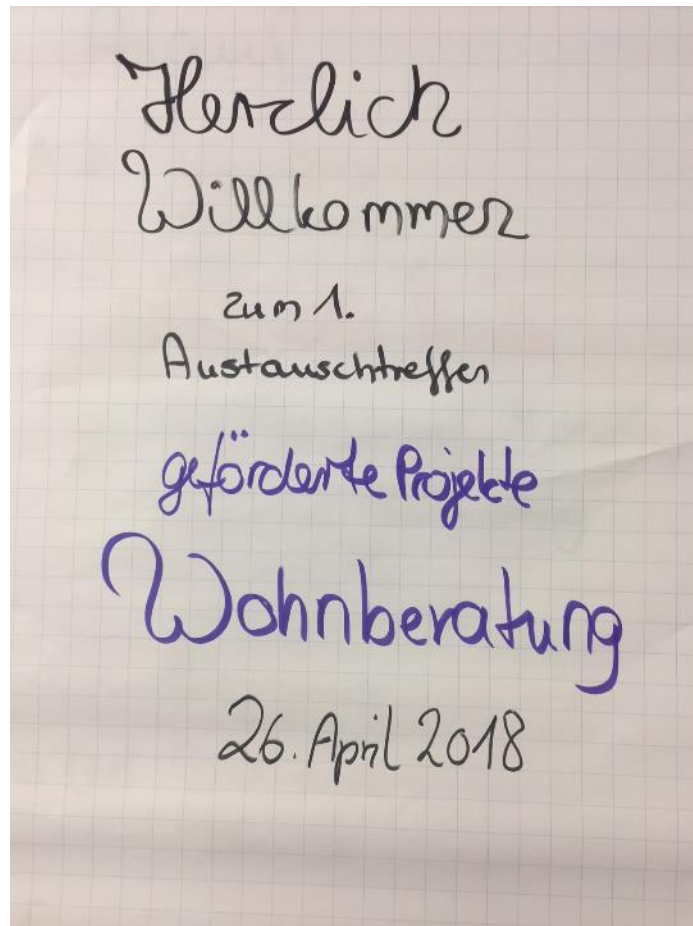 Herzlich
Willkommen
zum 1.
Austauschtreffen
geförderte Projekte
Wohnberatung
26. April 2018